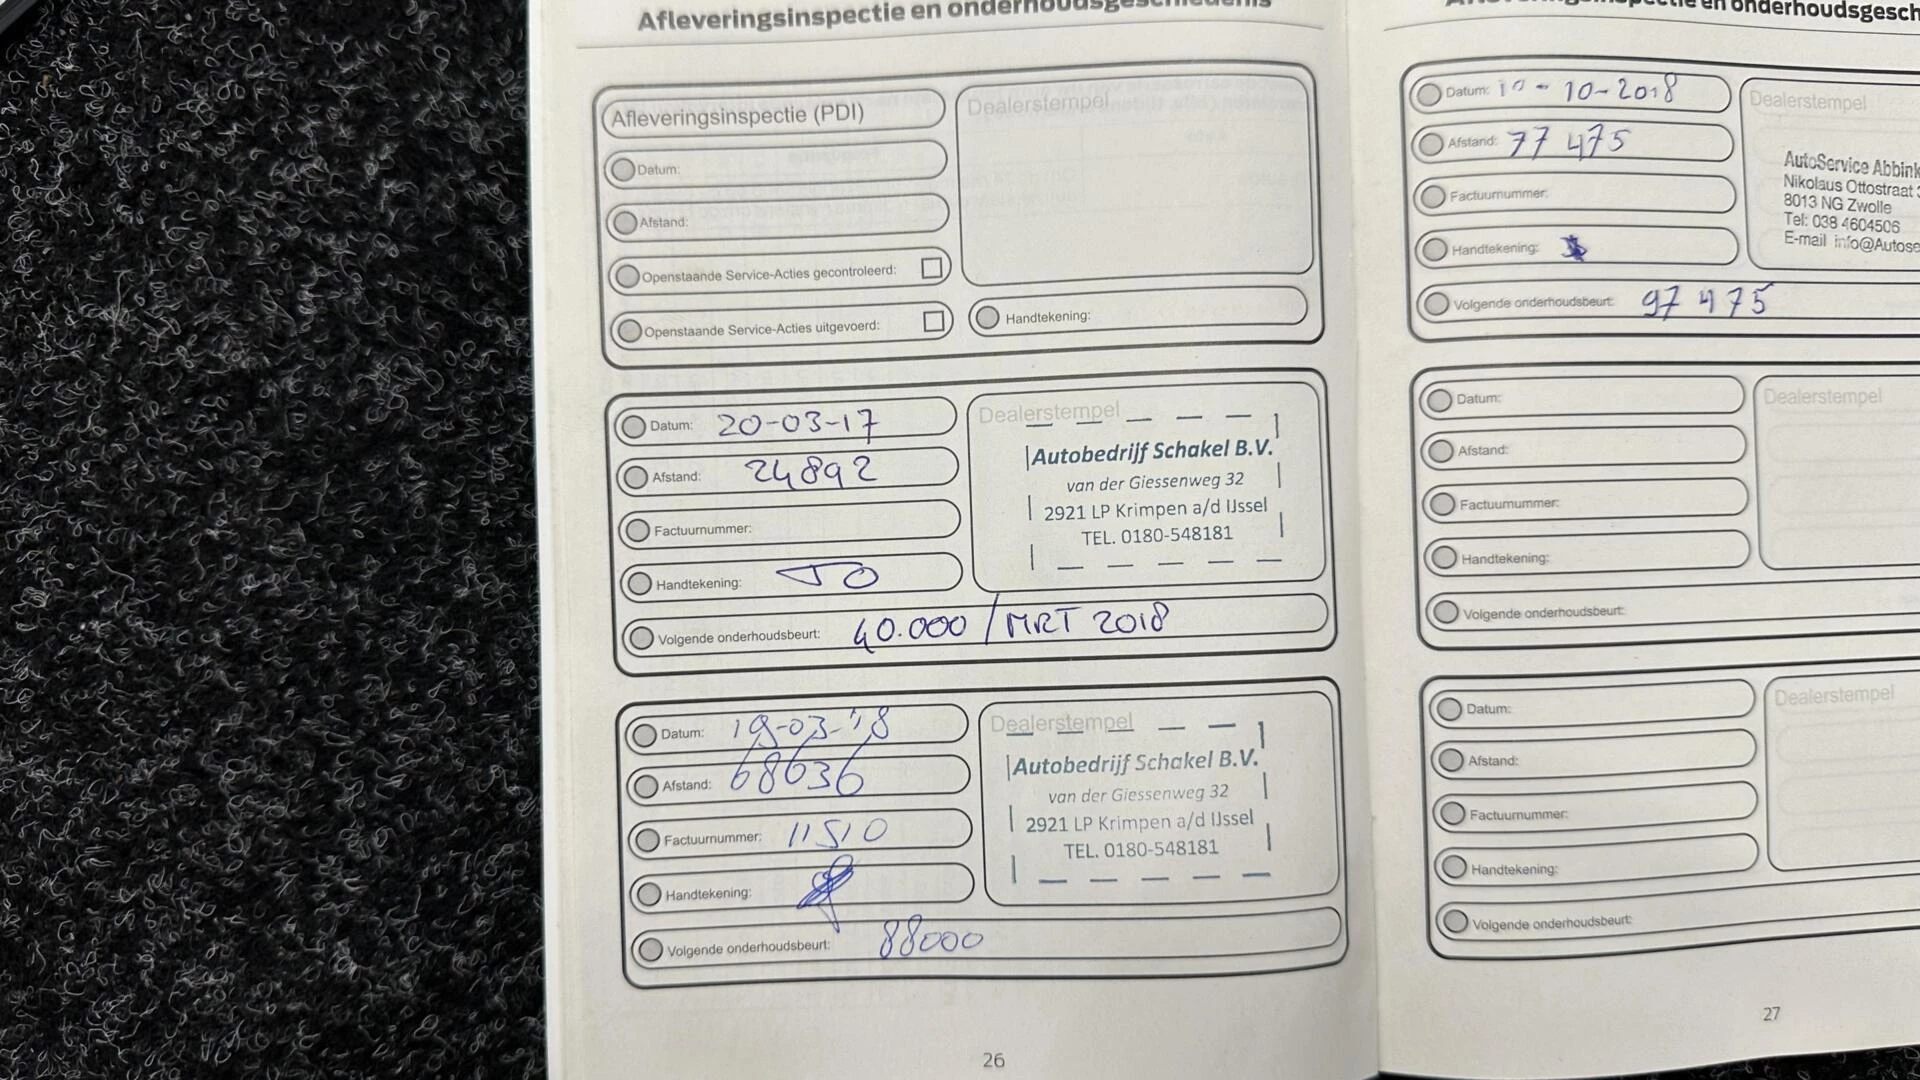 Afleveringsinspectie en onderhoudsgeschiedenis
Afleveringsinspectie (PDI)
Datum:
Afstand:
Openstaande Service-Acties gecontroleerd:
Openstaande Service-Acties uitgevoerd:
Dealerstempel
Handtekening:
Datum: 20-03-17
Afstand: 24892
Factuurnummer:
Handtekening:
Dealerstempel
Autobedrijf Schakel B.V.
van der Giessenweg 32
2921 LP Krimpen a/d IJssel
TEL. 0180-548181
Volgende onderhoudsbeurt: 40.000 / MRT 2018
Datum: 19-03-'18
Afstand: 68636
Factuurnummer: 11510
Handtekening:
Dealerstempel
Autobedrijf Schakel B.V.
van der Giessenweg 32
2921 LP Krimpen a/d IJssel
TEL. 0180-548181
Volgende onderhoudsbeurt: 88000
26
en onderhoudsgesch
Datum: 10-2018
Afstand: 77 475
Factuurnummer:
Handtekening:
Dealerstempel
AutoService Abbink
Nikolaus Ottostraat
8013 NG Zwolle
Tel: 038 4604506
E-mail info@Autose
Volgende onderhoudsbeurt: 97 475
Datum:
Afstand:
Factuurnummer:
Handtekening:
Dealerstempel
Volgende onderhoudsbeurt:
Datum:
Afstand:
Factuurnummer:
Handtekening:
Dealerstempel
Volgende onderhoudsbeurt:
27